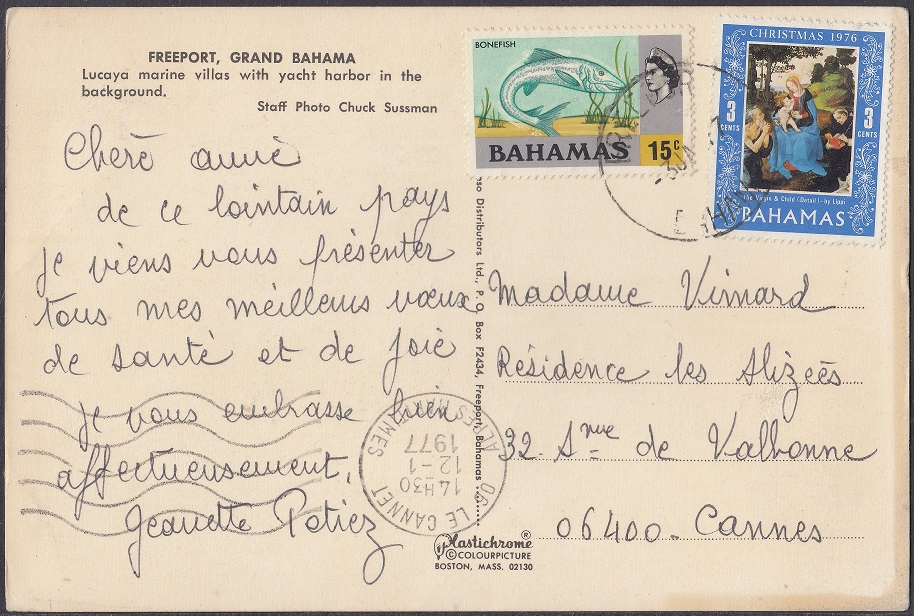 FREEPORT, GRAND BAHAMA
Lucaya marine villas with yacht harbor in the
background.
Staff Photo Chuck Sussman
Chère amie
de ce lointain pays
je viens vous présenter
tous mes meilleurs vœux
de santé et de joie
je vous embrasse bien
affectueusement,
Jeanette Potiez
BONEFISH
BAHAMAS 15c
CHRISTMAS 1976
3 CENTS
3 CENTS
The Virgin & Child (Detail) - by Lippi
BAHAMAS
Distributors Ltd., P. O. Box F2434, Freeport, Bahamas
Madame Vimard
Résidence les Alizées
32. Anue de Valbonne
06400. Cannes
06 LE CANNET
14H30
12-1
1977
ALPES MARITIMES
Plastichrome®
© COLOURPICTURE
BOSTON, MASS. 02130